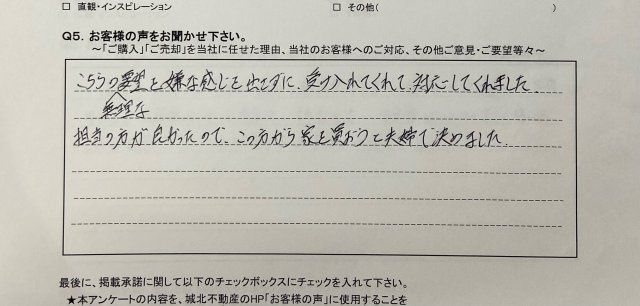 □ 直観・インスピレーション　□ その他（　）
Q5. お客様の声をお聞かせ下さい。
～「ご購入」「ご売却」を当社に任せた理由、当社のお客様へのご対応、その他ご意見・ご要望等々～
こちらの要望を嫌な感じを出さずに、受け入れてくれて、対応してくれました
無理な
担当の方が良かったので、この方から家を買おうと夫婦で決めました.
最後に、掲載承諾に関して以下のチェックボックスにチェックを入れて下さい。
★本アンケートの内容を、城北不動産のHP「お客様の声」に使用することを